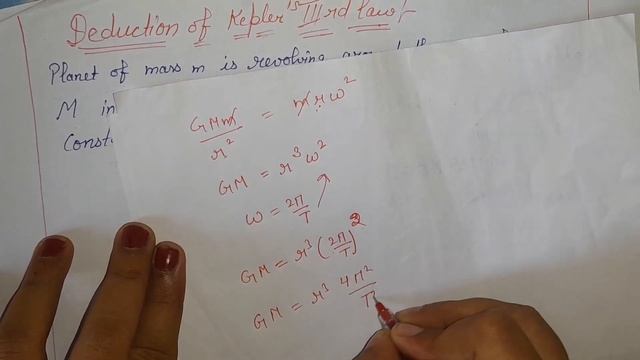 Deduction of Kepler's IIIrd law:-
Planet of mass m is revolving
M in
Const
GMm/r² = mrω²
GM = r³ω²
ω = 2π/T
GM = r³(2π/T)²
GM = r³ 4π²/T